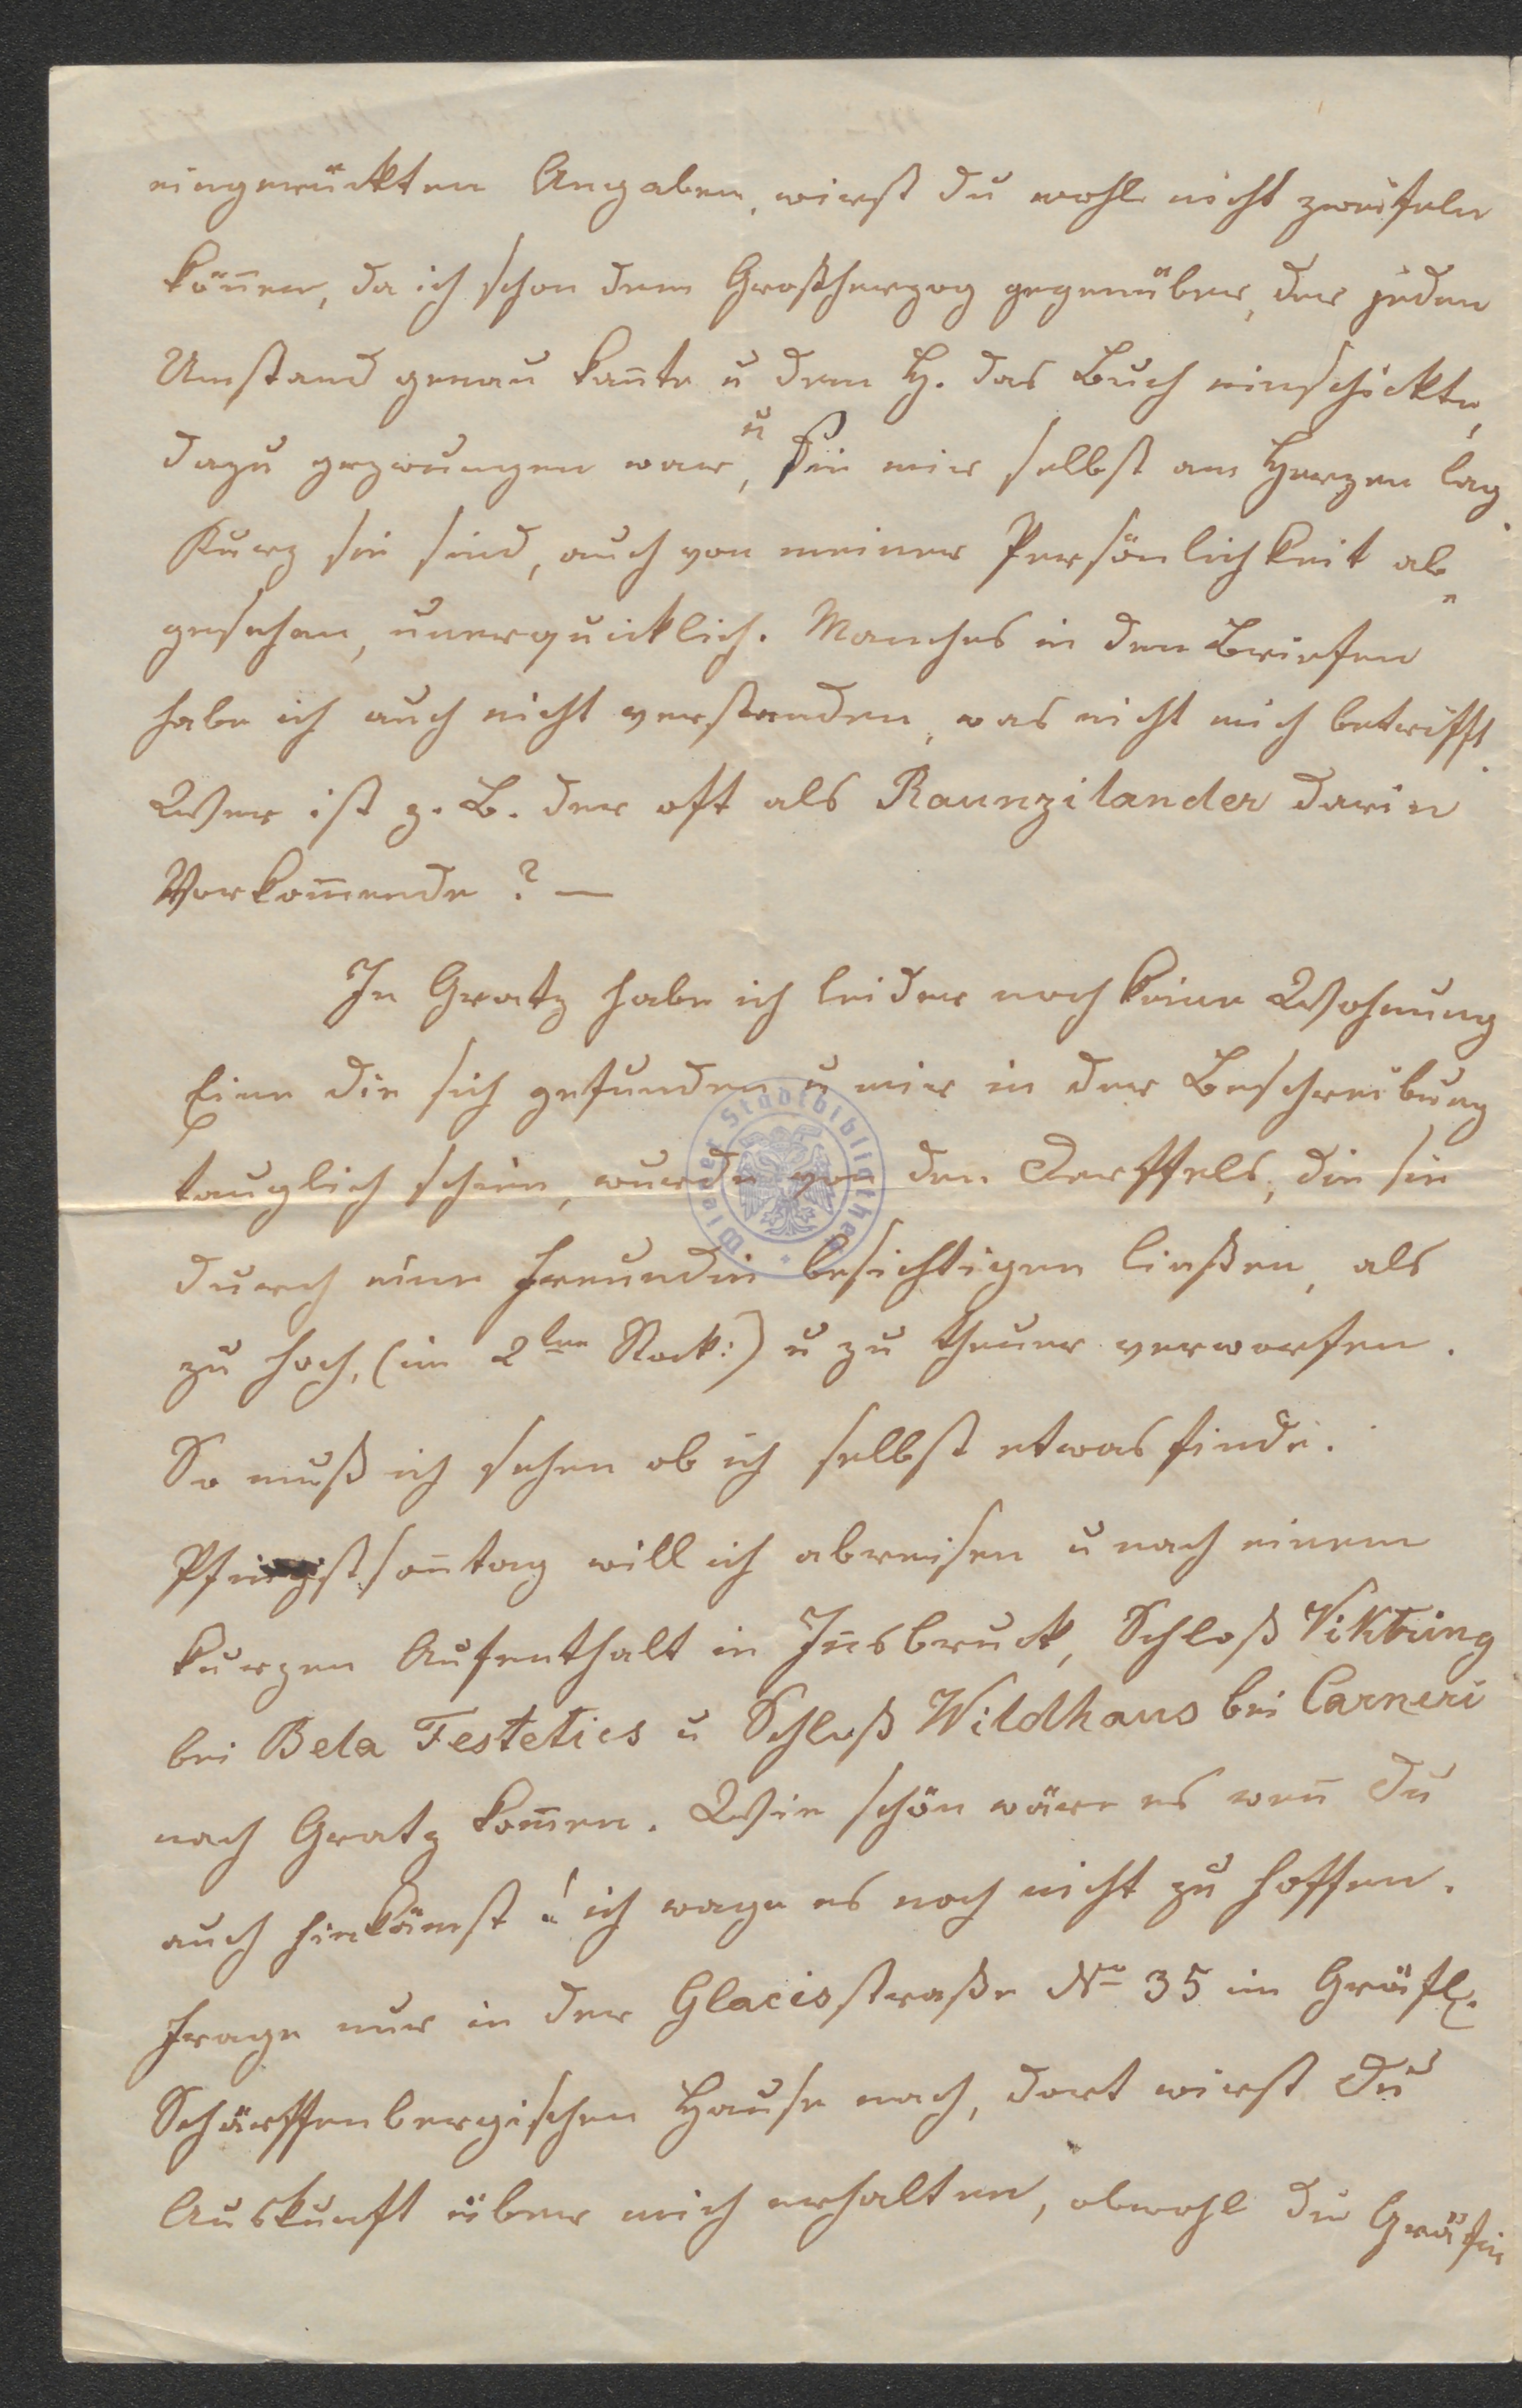 eingerückten Angaben, wirst du wohl nicht zweifeln
köñen, da ich schon dem Großherzog gegenüber, der jeden
Umstand genau kañte u dem H. das Buch einschickte,
dazu gezwungen war, u sie mir selbst am Herzen lag.
Kurz sie sind, auch von meiner Persönlichkeit ab„
gesehen, unerquicklich. Manches in den Briefen
habe ich auch nicht verstanden, was nicht mich betrifft.
Wer ist z. B. der oft als Raunzilander darin
Vorkom̄ende? —
In Gratz habe ich leider noch keine Wohnung
Eine die sich gefunden u mir in der Beschreibung
tauglich schien, wurde von den Derffels, die sie
durch eine Freundin besichtigen ließen, als
zu hoch, (im 2ten Stock:) u zu theuer verworfen.
So muß ich sehen ob ich selbst etwas finde.
Pfingstsoñtag will ich abreisen u nach einem
kurzen Aufenthalt in Iñsbruck, Schloß Viktring
bei Bela Festetics u Schloß Wildhaus bei Carneri
nach Gratz kom̄en. Wie schön wäre es weñ Du
auch hinkämst! ich wage es noch nicht zu hoffen.
Frage nur in der Glacisstraße No 35 im Gräfl.
Schärffenbergischen Hause nach, dort wirst Du
Auskunft über mich erhalten, obwohl die Gräfin
Wiener Stadtbibliothek